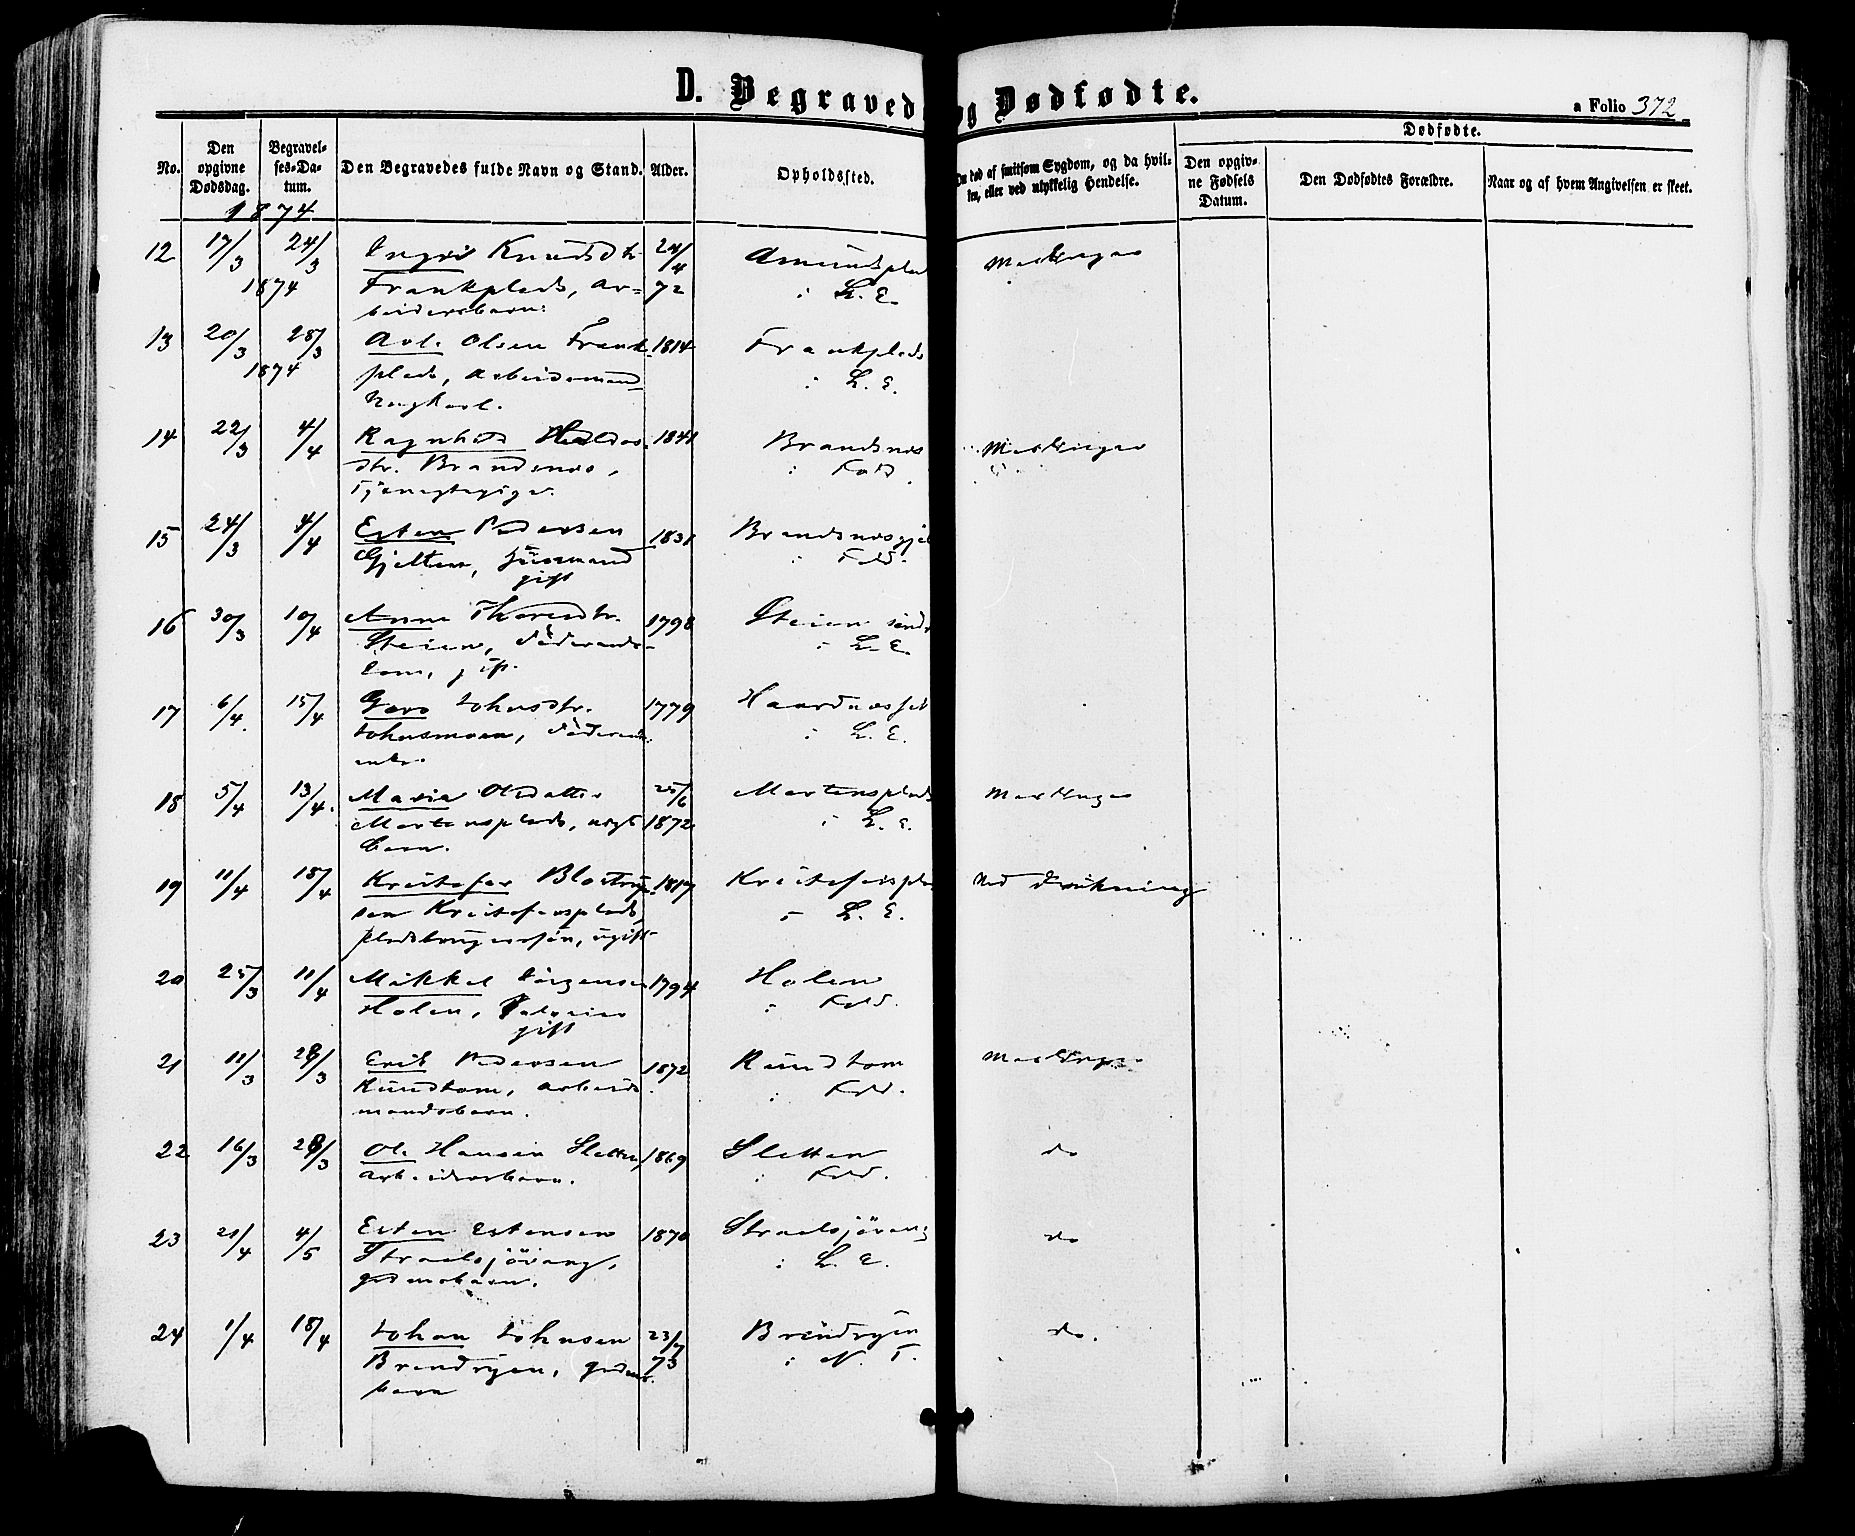 D. Begravede og Dødfødte.
a Folio 372
No.
Den opgivne Dødsdag.
Begravelses-Datum.
Den Begravedes fulde Navn og Stand.
Alder.
Opholdssted.
død af smitsom Sygdom, og da hvilken, eller ved ulykkelig Hendelse.
Dødfødte.
Den opgivne Fødsels Datum.
Den Dødfødtes Forældre.
Naar og af hvem Angivelsen er skeet.
1874
12 17/3 24/3 Ingri Knudsdtr. 24/4 Amundsplad
1874 Frankplads, ar- 72 i L. E.
beidersbarn.
13 20/3 28/3 Avl. Olsen Frank- 1814 Frankplads
1874 plads, Arbeidsmand, i L. E.
14 22/3 4/4 Ragnhild 1841 Brandsnes
dtr. Brandsnes, i Fold.
15 24/3 4/4 Esten Pedersen 1831
Gjelten, Husmand i Fold.
gift
16 30/3 10/4 Anne Thoresdtr. 1798 Steien
Steien, Föderaads- i L. E.
kone, gift.
17 6/4 15/4 Johnsdtr. 1779
Johnsmoen, i L. E.
enke.
18 5/4 13/4. Maria Olsdatter 25/6 Mortensplads
Mortensplads, 1872 i L. E.
barn.
19 11/4 18/4 Kristofer 1817 Ved Drukning
sen Kristofersplads, i L. E.
ugift
20 25/3 11/4 Mikkel Jörgensen 1794 Holen
Holen, i Fold.
gift
21 11/3 28/3 Erik Pedersen 1872 Rundtom
Rundtom, arbeids- i Fold.
mandsbarn.
22 16/3 28/3 Ole Hansen Sletten, 1869 Sletten do
arbeidersbarn. i Fold.
23 21/4 4/5 Esten Estensen 1870 Straalsjövang do
Straalsjövang, i L. E.
gdmsbarn.
24 1/4 18/4 Johan Johnsen 23/7 Brendryen do.
Brendryen, gdms- 73 i N. T.
barn